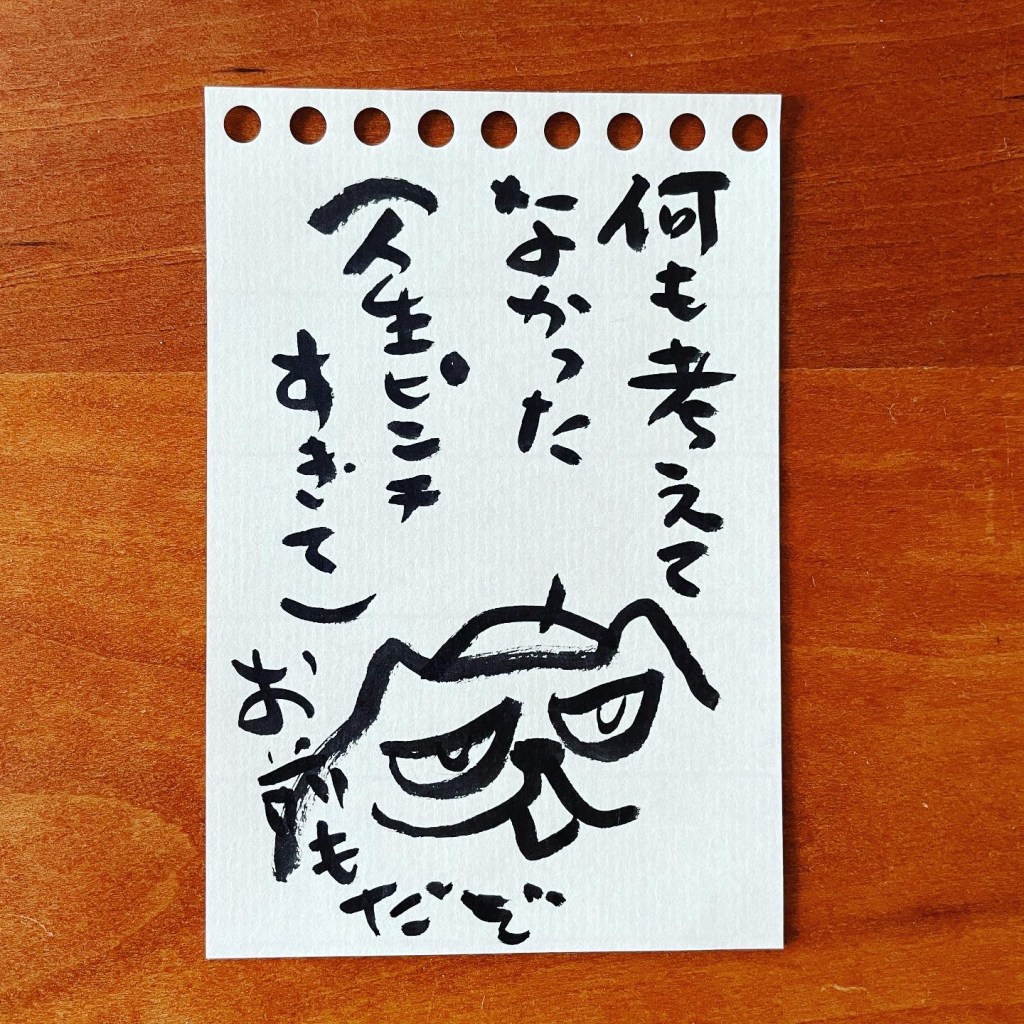 何も考えて
なかった
(人生ピンチ
すぎて)
お前もだぞ